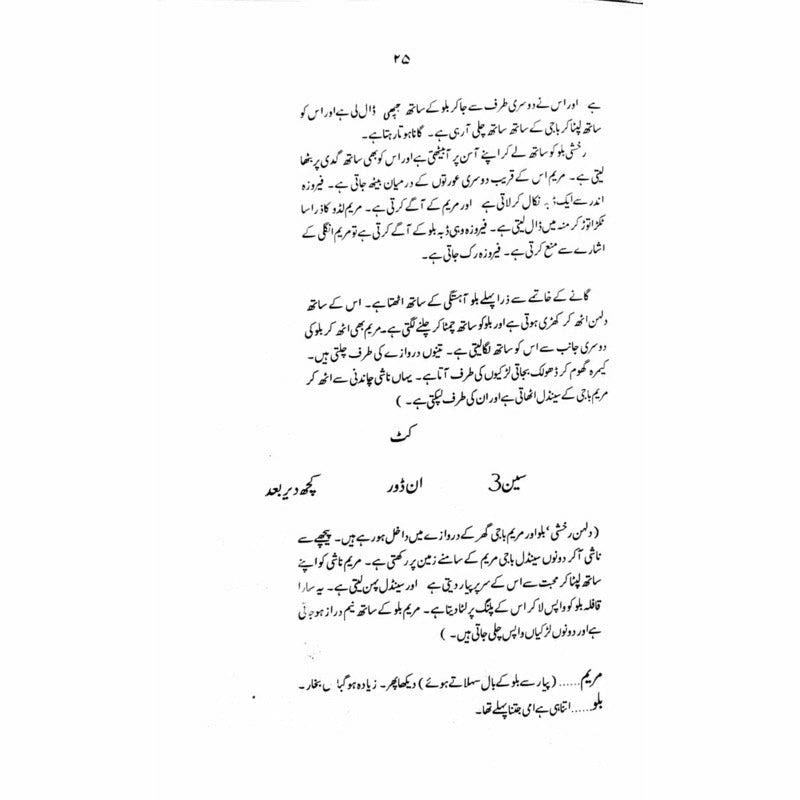 ۲۵
ہے اور اس نے دوسری طرف سے جا کر بلو کے ساتھ جپھی ڈال لی ہے اور اس کو
ساتھ لپٹا کر باجی کے ساتھ ساتھ چلی آ رہی ہے۔ گانا ہوتا رہتا ہے۔
رخشی بلو کو ساتھ لے کر اپنے آسن پر آ بیٹھتی ہے اور اس کو بھی ساتھ گدی پر بٹھا
لیتی ہے۔ مریم اس کے قریب دوسری عورتوں کے درمیان بیٹھ جاتی ہے۔ فیروزہ
اندر سے ایک ڈبہ نکال کر لاتی ہے اور مریم کے آگے کرتی ہے۔ مریم لڈو کا ذرا سا
ٹکڑا توڑ کر منہ میں ڈال لیتی ہے۔ فیروزہ وہی ڈبہ بلو کے آگے کرتی ہے تو مریم انگلی کے
اشارے سے منع کرتی ہے۔ فیروزہ رک جاتی ہے۔
گانے کے خاتمے سے ذرا پہلے بلو آہستگی کے ساتھ اٹھتا ہے۔ اس کے ساتھ
دلہن اٹھ کر کھڑی ہوتی ہے اور بلو کو ساتھ چمٹا کر چلنے لگتی ہے۔ مریم بھی اٹھ کر بلو کی
دوسری جانب سے اس کو ساتھ لگا لیتی ہے۔ تینوں دروازے کی طرف چلتی ہیں۔
کیمرہ گھوم کر ڈھولک بجاتی لڑکیوں کی طرف آتا ہے۔ یہاں تاشی چاندنی سے اٹھ کر
مریم باجی کے سینڈل اٹھاتی ہے اور ان کی طرف لپکتی ہے۔ )
کٹ
سین 3 ان ڈور کچھ دیر بعد
( دلہن رخشی‘ بلو اور مریم باجی گھر کے دروازے میں داخل ہو رہے ہیں۔ پیچھے سے
تاشی آ کر دونوں سینڈل باجی مریم کے سامنے زمین پر رکھتی ہے۔ مریم تاشی کو اپنے
ساتھ لپٹا کر محبت سے اس کے سر پر پیار دیتی ہے اور سینڈل پہن لیتی ہے۔ یہ سارا
قافلہ بلو کو واپس لا کر اس کے پلنگ پر لٹا دیتا ہے۔ مریم بلو کے ساتھ نیم دراز ہو جاتی
ہے اور دونوں لڑکیاں واپس چلی جاتی ہیں۔ )
مریم...... ( پیار سے بلو کے بال سہلاتے ہوئے ) دیکھا پھر۔ زیادہ ہو گیا ں بخار۔
بلو...... اتنا ہی ہے امی جتنا پہلے تھا۔